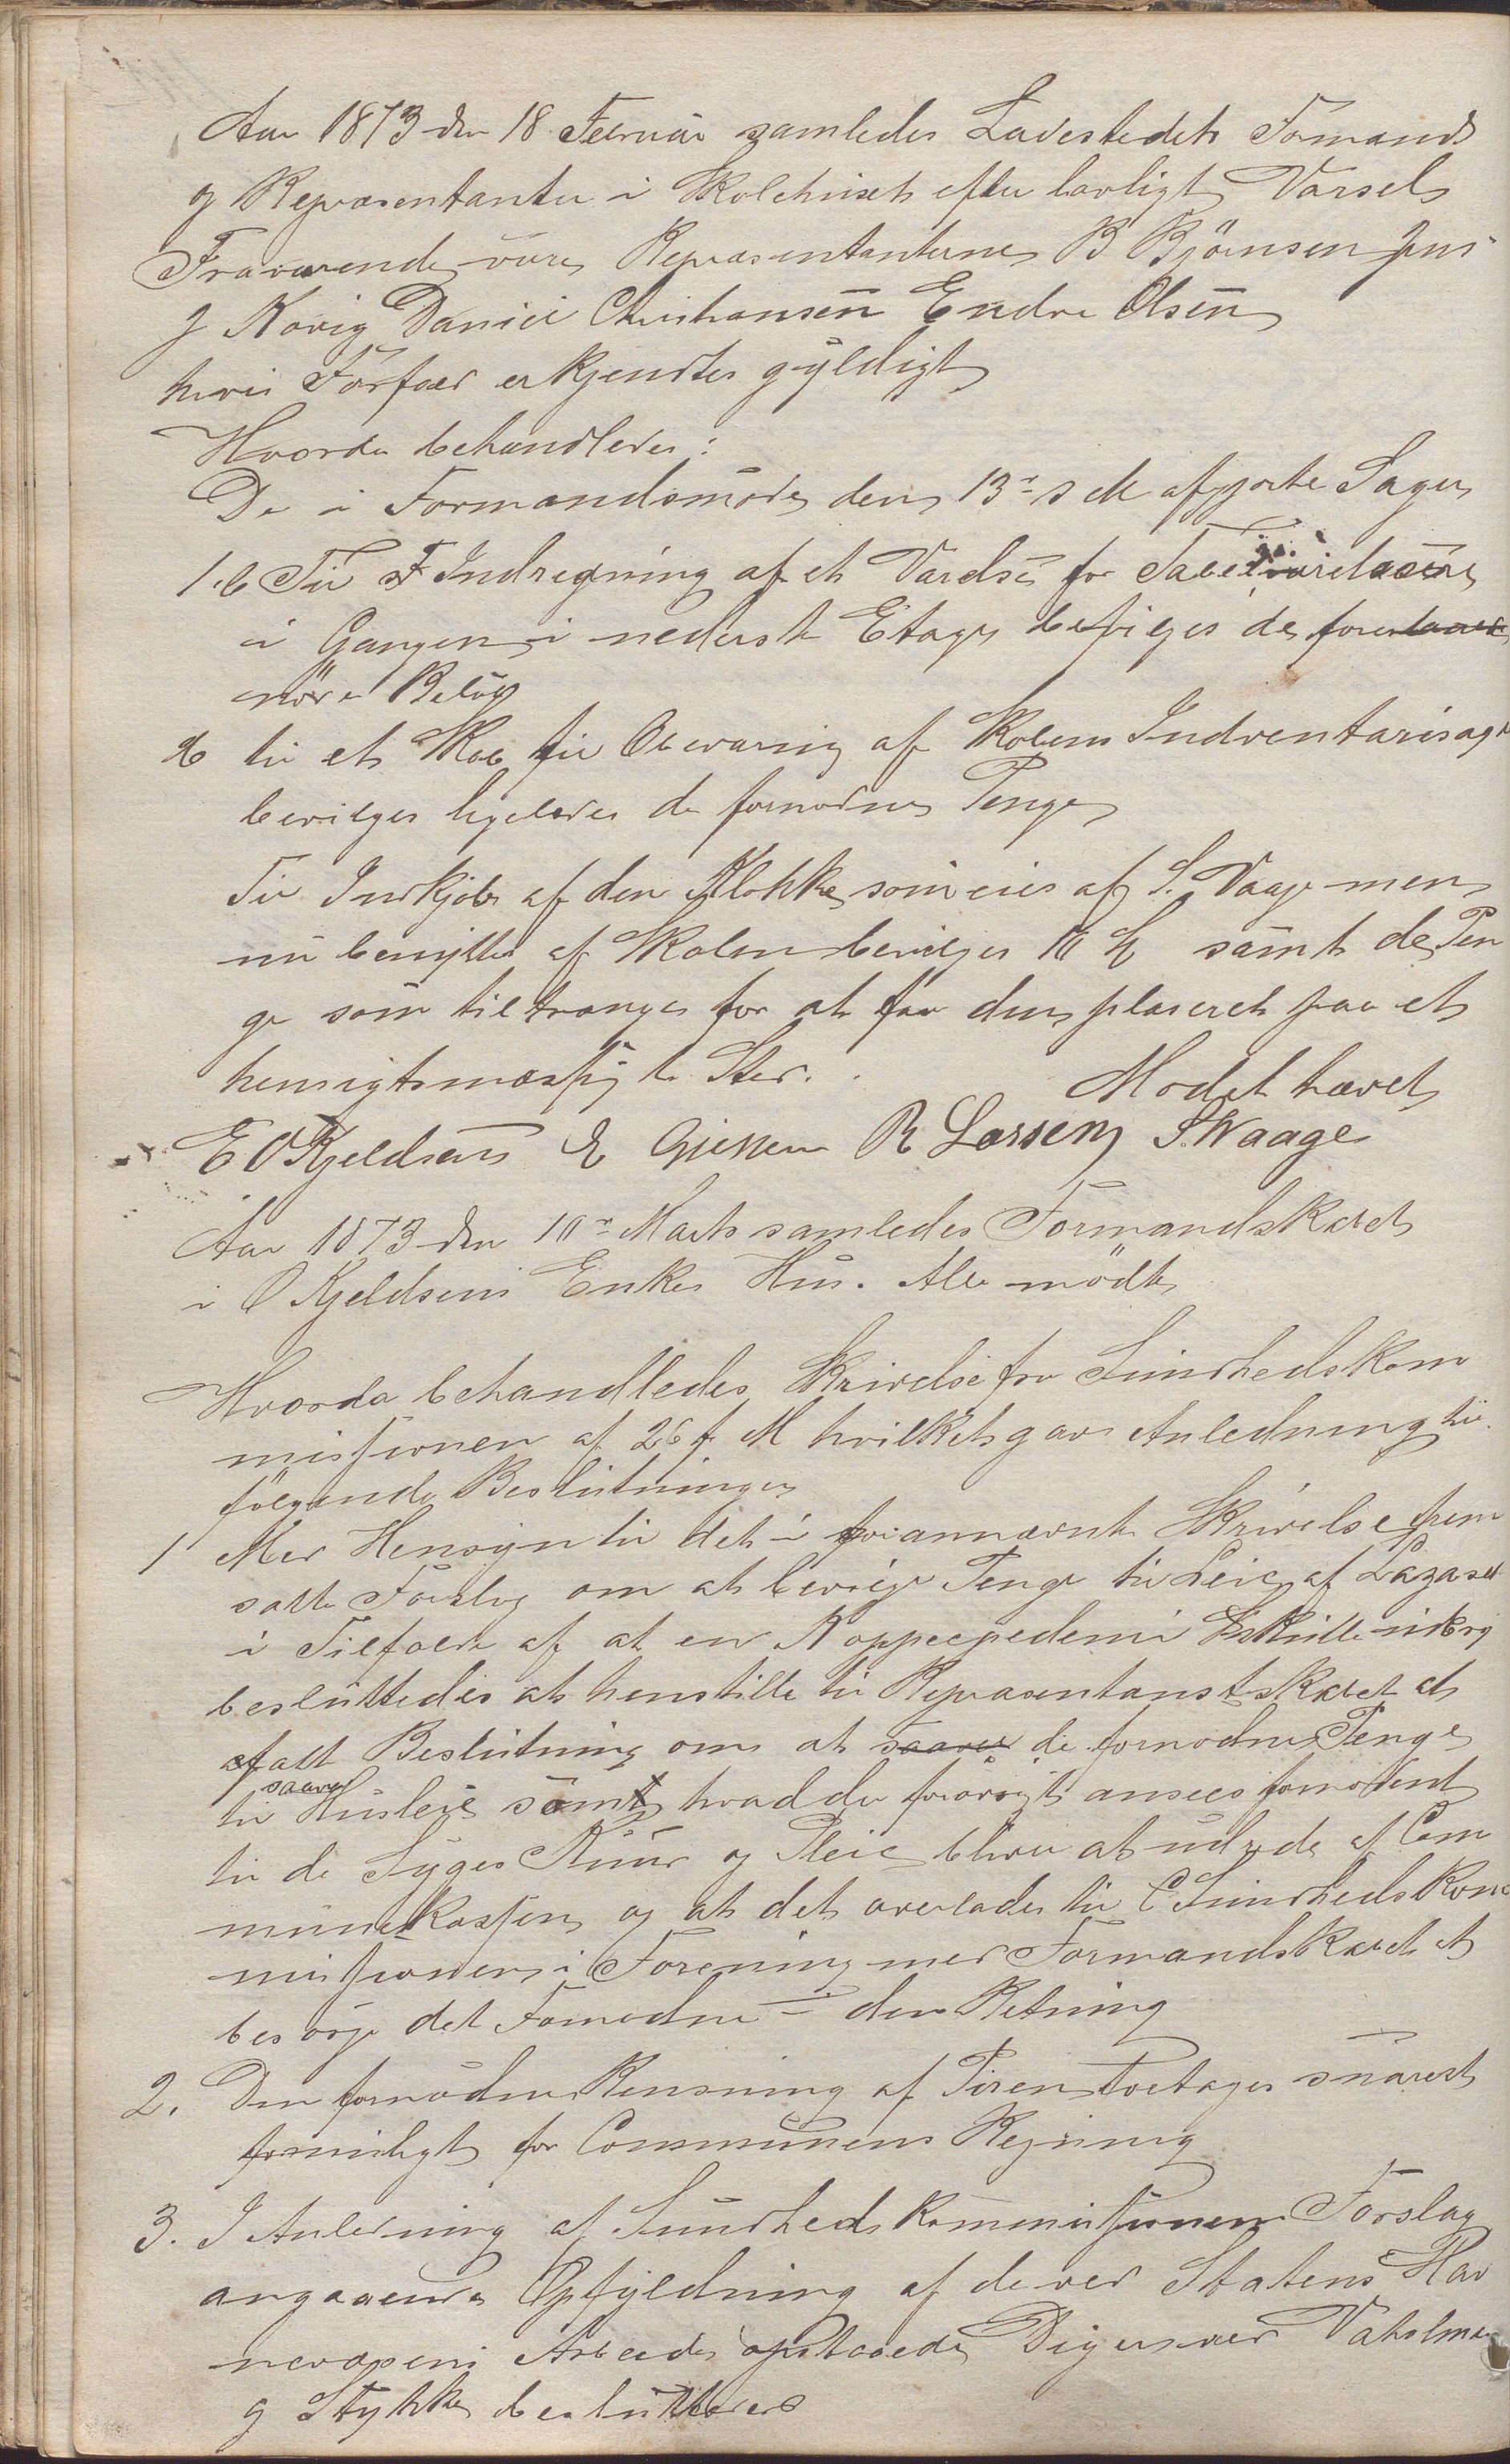 Aar 1873 den 18 Februar samledes Ladestedets Formænd
og Repræsentanter i Skolehuset efter lovligt Varsel
Fraværende vare Repræsentanterne B Björnsen Jens
J Norvig Daniel Christiansen Endre Olsen
hvis Forfald erkjendtes gyldigt
Hvorda behandledes:
De i Formandsmöde den 13de ds M afgjorte Sager
1. b Til Indregning af et Værelse for
i Gangen i nederste Etage bevilges de for
nödne Belöb
2 til et Skab til Obevaring af Skolens Indventariesager
bevilges ligeledes de fornødne Penge
Til Indkjøb af den Klokke som eies af S. Vaage men
nu benyttes af Skolen bevilges samt de Pen
ge som tiltrænges for at faa den plaseret paa et
hensigtsmæssigt Sted.
Mødet hævet
E O Kjeldsen E Gjessen R Larsen S Waage
Aar 1873 den 10de Marts samledes Formandskabet
i O Kjeldsens Enkes Hus. Alle mödte
Hvorda behandledes Skrivelse fra Sundhedskom
missionen af 26 f M hvilket gav Anledning til
fölgende Beslutninger
1 Med Hensyn til det i forannævnte Skrivelse frem
satte Forslag om at bevilge Penge til Leie af Lazaret
i Tilfælde af at en Koppeepedemi skulde udbry
besluttedes at henstille til Repræsentantskabet at
afatt Beslutning om at saavel de fornødne Penge
til saavel Husleie samt hvad der forøvrigt ansees fornødent
til de Syges Kuur og Pleie bliver at udrede af Com
munekassen og at det overlades til Sundhedskom
missionen i Forening med Formandskabet at
besørge det Fornødne i den Retning
2. Den fornødne Rensning af Piren foretages snarest
formuligt for Communens Regning
3. I Anledning af Sundhedskommissionens Forslag
angaaende Opfyldning af de ved Statens Hav
nevæsens Arbeide opstaaede Diger ved
og Stykke besluttedes